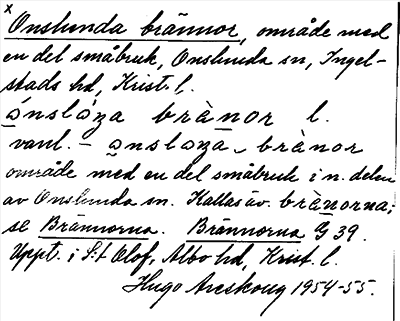 x
Onslunda brännor, område med
en del småbruk, Onslunda sn, Ingel-
stads hd, Krist. l.
ónslòza brὲnor l.
vanl. – onslòza brὲnor
område med en del småbruk i n. delen
av Onslunda sn. Kallas äv. brὲnorna;
se Brännorna. Brännorna G 39.
Uppt. i S:t Olof, Albo hd, Krist. l.
Hugo Areskoug 1954-55.